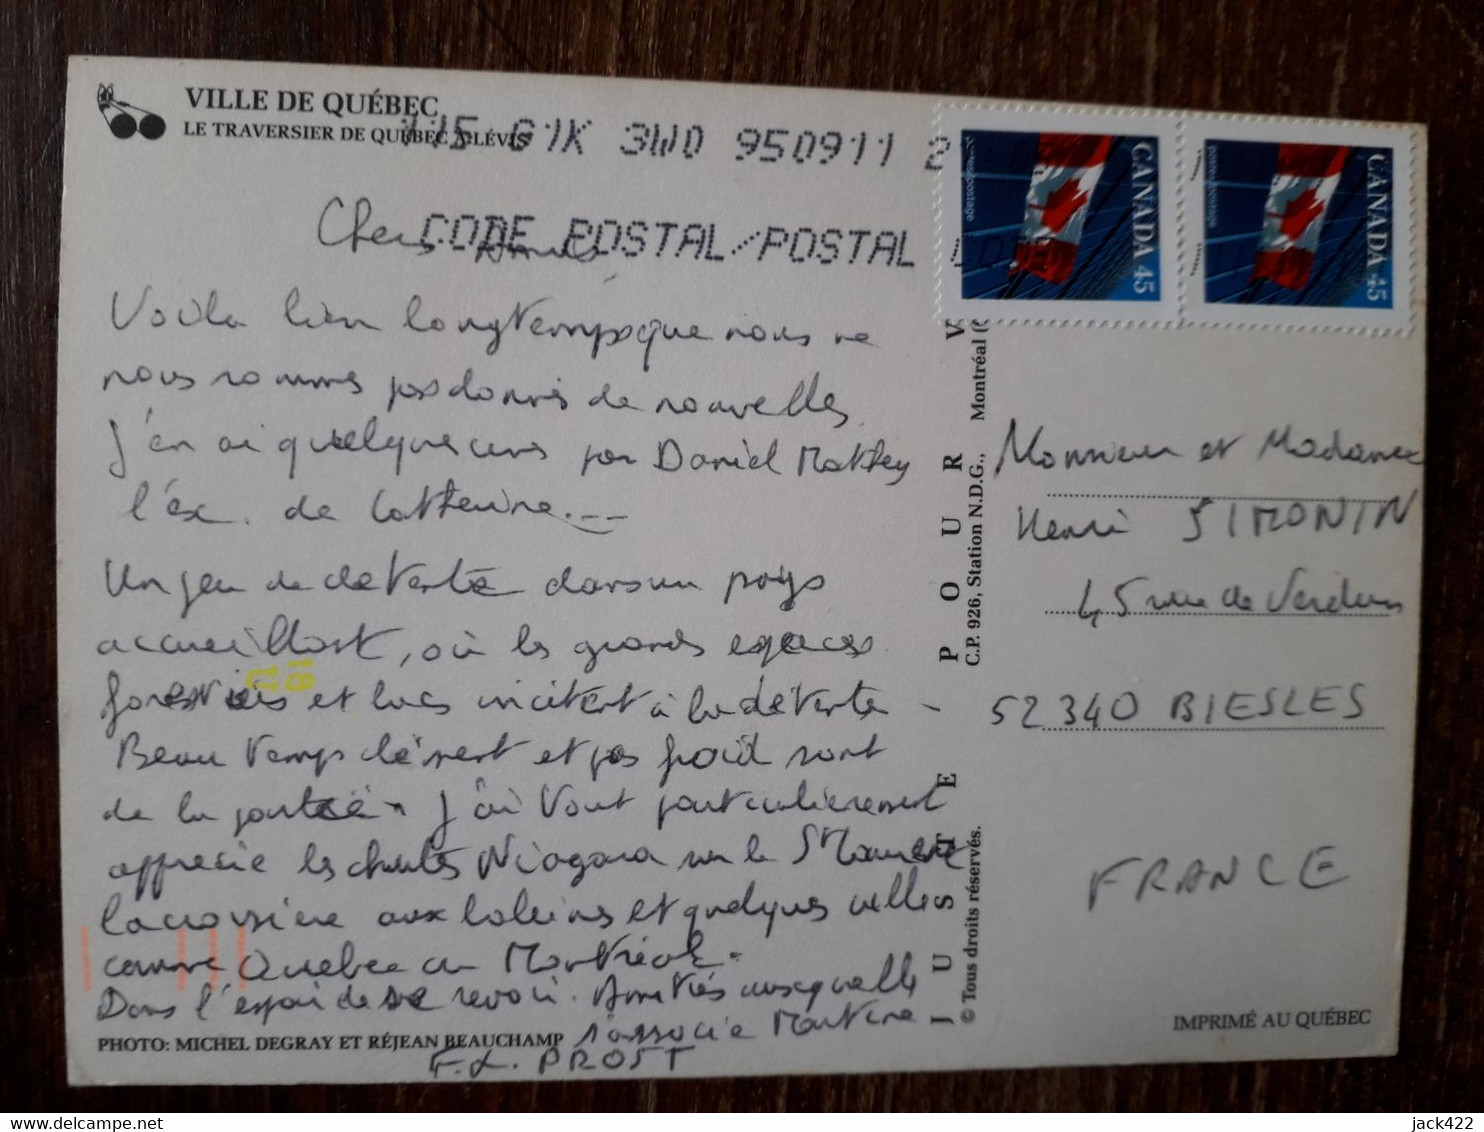 VILLE DE QUÉBEC
LE TRAVERSIER DE QUÉBEC À LÉVIS
G1K 3W0 950911 2
CODE POSTAL/POSTAL
CANADA 45
CANADA 45
postes/postage
Chers Amis
Voila bien longtemps que nous ne
nous sommes pas donnés de nouvelles.
J'en ai quelques unes par Daniel
l'ex. de Catherine...
Un peu de détente dans un pays
accueillant, où les grands espaces
forestiers et lacs incitent à la détente -
Beau temps clément et pas froid sont
de la partie. J'ai tout particulièrement
apprecié les chutes Niagara sur le St Maurice
la croisière aux baleines et quelques villes
comme Quebec ou Montréal.
Dans l'espoir de se revoir. Amitiés auxquelles
s'associe Martine -
F.L. PROST
PHOTO: MICHEL DEGRAY ET RÉJEAN BEAUCHAMP
POUR V
C.P. 926, Station N.D.G., Montréal (
USTE
© Tous droits réservés.
Monsieur et Madame
Henri SIMONIN
45 rue de Verdun
52340 BIESLES
FRANCE
IMPRIMÉ AU QUÉBEC
jack422